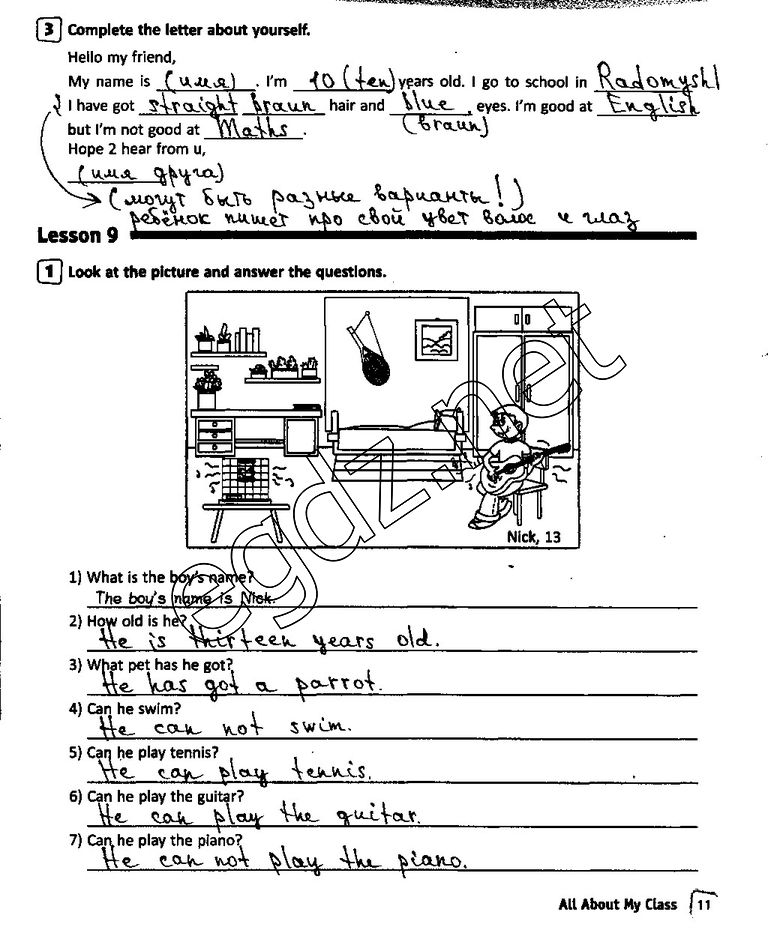 3 Complete the letter about yourself.
Hello my friend,
My name is (имя). I'm 10 (ten) years old. I go to school in Radomyshl
I have got straight braun hair and blue, eyes. I'm good at English
(braun)
but I'm not good at Maths.
Hope 2 hear from u,
(имя друга)
(могут быть разные варианты!)
ребёнок пишет про свой цвет волос и глаз
Lesson 9
1 Look at the picture and answer the questions.
Nick, 13
egdz.net
1) What is the boy's name?
The boy's name is Nick.
2) How old is he?
He is thirteen years old.
3) What pet has he got?
He has got a parrot.
4) Can he swim?
He can not swim.
5) Can he play tennis?
He can play tennis.
6) Can he play the guitar?
He can play the guitar.
7) Can he play the piano?
He can not play the piano.
All About My Class 11